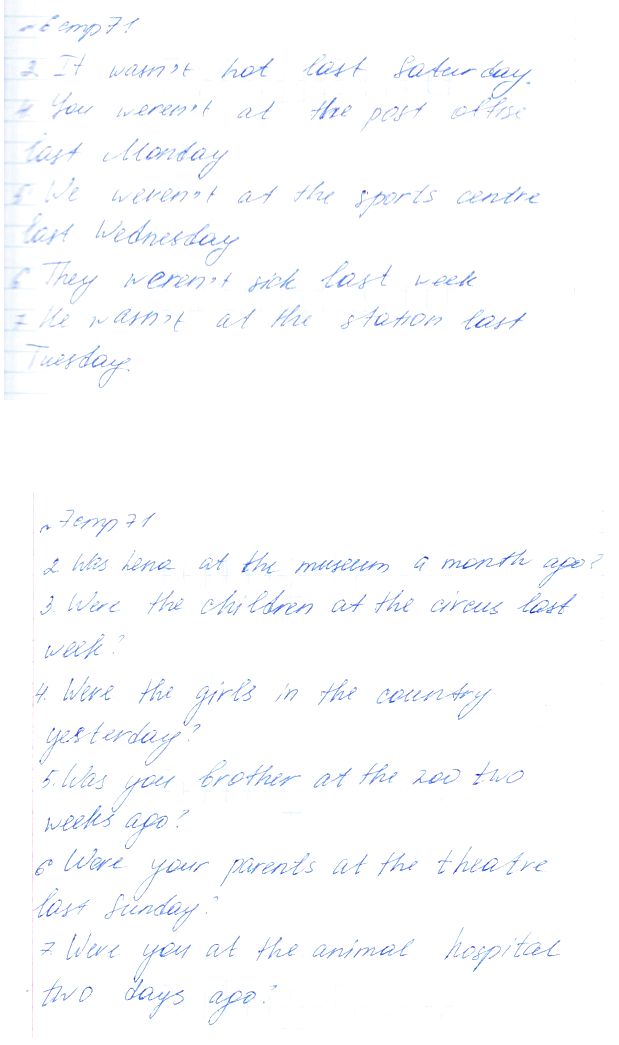 №6 стр 71
3 It wasn't hot last Saturday.
4 You weren't at the post offise
last Monday
5 We weren't at the sports centre
last Wednesday
6 They weren't sick last week
7 He wasn't at the station last
Tuesday.
№7 стр 71
2 Was Lena at the museum a month ago?
3. Were the children at the circus last
week?
4. Were the girls in the country
yesterday?
5. Was you brother at the zoo two
weeks ago?
6 Were your parents at the theatre
last Sunday?
7. Were you at the animal hospital
two days ago?